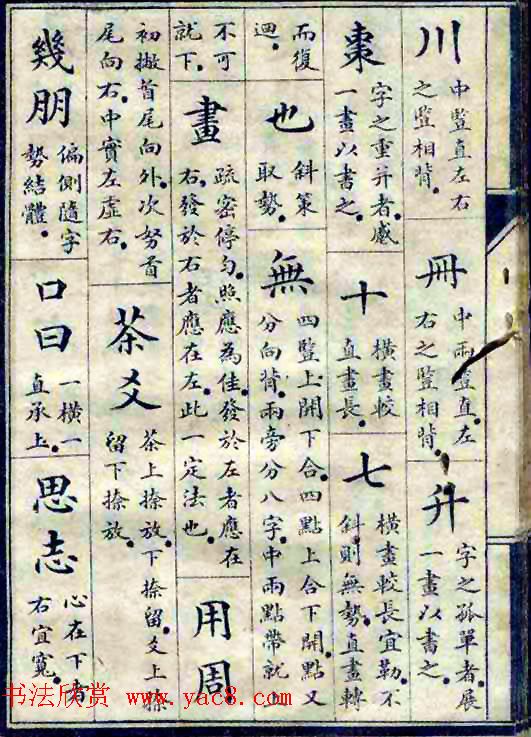 川
中豎直左右
之豎相背。
冊
中兩豎直。左
右之豎相背。
升
字之孤單者。展
一畫以書之。
棗
字之重并者。感
一畫以書之。
十
橫畫較
直畫長。
七
橫畫較長宜勒。不
斜。則無勢。直畫轉
而復
迴。
也
斜策
取勢。
無
四豎上開下合。四點上合下開。點又
分向背。兩旁分八字。中兩點帶就上
不可
就下。
畫
疏密停勻。照應為佳。發於左者應在
右。發於右者應在左。此一定法也。
用周
初撇首尾向外。次努首
尾向右。中實左虛右。
茶爻
茶上捺放。下捺留。爻上捺
留下捺放。
幾朋
偏側隨字
勢結體。
口曰
一橫一
直承上。
思志
心在下者
右宜寬。
书法欣赏 www.yac8.com